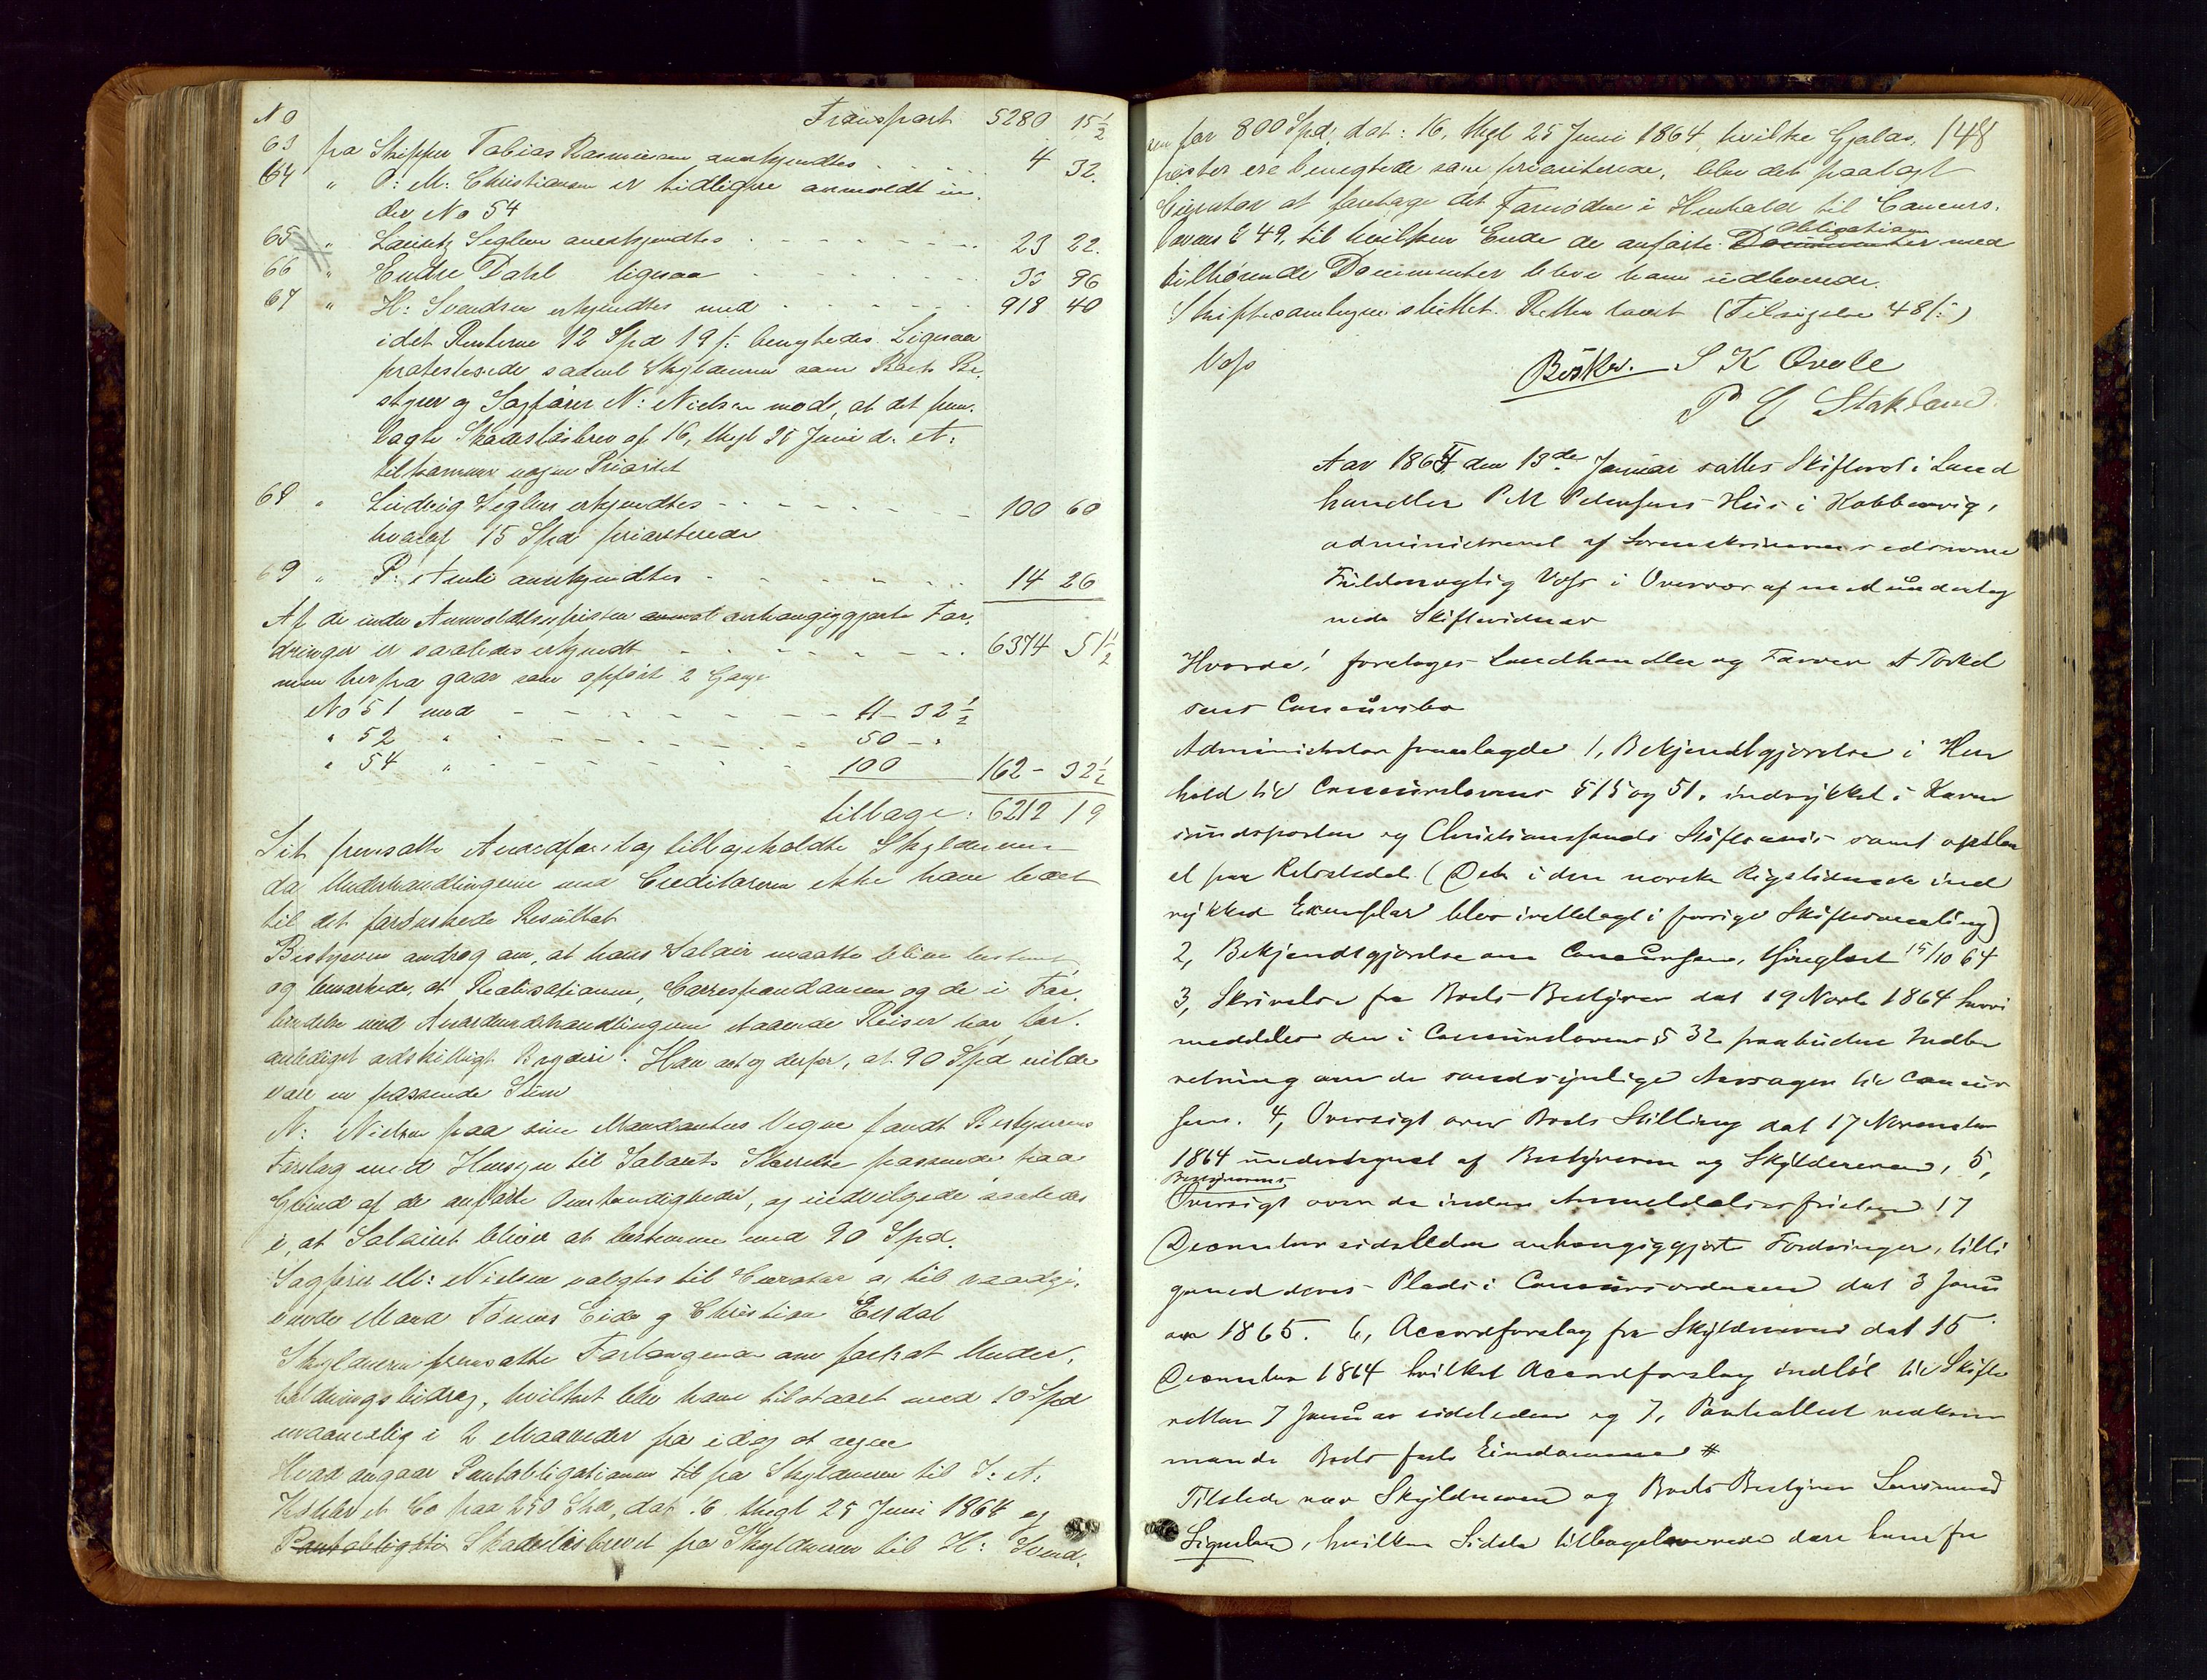 No Transport 5280 15½
63 fra Skipper Tobias Rasmussen anerkjendtes 4 32.
64 " P: M: Christiansen er tidligere anmeldt un-
der No 54
65 " Lauritz Seglem anerkjendtes 23 22.
66 " Endre Dahl ligesaa 33 96
67 " H: Svendsen erkjendtes med 918 40
idet Renterne 12 Spd 19 s: benegtedes. Ligesaa
protesterede saavel Skyldneren som Boets Be-
styrer og Sagfører N: Nielsen mod, at det frem-
lagte Skadesløsbrev af 16, thgl 25 Juni d: A:
tilkommer nogen Prioritet
68 " Ludvig Seglem erkjendtes 100 60
hvoraf 15 Spd prioriterede
69 " P: Aanli anerkjendtes 14 26
Af de inden Anmeldelsesfristen anhængiggjorte For-
dringer er saaledes erkjendt 6374 51½
men herfra gaar som opført 2 Gange
No 51 med 11 - 32½
" 52 " 50 - "
" 54 " 100 162 - 32½
tilbage: 6212 19
Sit fremsatte Accordforslag tilbageholdte Skyldneren
da Underhandlingerne med Creditorerne ikke have ledet
til det forønskede Resultat
Bestyreren androg om, at hans Salair maatte blive bestemt
og bemærkede, at Realisationen, Correspondancen og de i For-
bindelse med Accordunderhandlingerne staaende Reiser har for-
anlediget adskilligt Bryderi. Han antog derfor, at 90 Spd vilde
være en passende Sum
N: Nielsen paa sine Mandanters Vegne fandt Bestyrerens
Forslag med Hensyn til Salairets Størrelse passende paa
Grund af de anførte Omstændigheder, og indvilgede saaledes
i, at Salairet bliver at bestemme med 90 Spd.
Sagfører M: Nielsen valgtes til Curator og til raadgi-
vende Mænd Tønnes Eide og Christian Eisdal
Skyldneren fremsatte Forlangende om forsat Under-
holdningsbidrag, hvilket blev ham tilstaaet med 10 Spd
maanedlig i 2 Maaneder fra idag at regne
Hvad angaar Pantobligationen fra Skyldneren til J: A:
& Co paa 250 Spd, dat. 16 thgl 25 Juni 1864 og
Pantobligatio Skadesløsbrevet fra Skyldneren til H: Svend-
sen for 800 Spd, dat: 16, thgl 25 Juni 1864, hvilke Gjelds- 148
poster ere benegtede som prioriterede, blev det paalagt
Curator at foretage det Fornødne i Henhold til Concurs-
lovens § 49, til hvilken Ende de anførte Documenter Obligationer med
tilhørende Documenter bleve ham udleverede.
Skiftesamlingen sluttet. Retten hævet (Tilsigelse 48 s:)
Voss S K Qvale
P C Stakland
Aar 1865 den 13de Januar sattes Skifteret i Land
handler P M Petersens Hus i Kobbervig,
administreret af Sorenskriverens edsvorne
Fuldmægtig Voss i Overvær af medunderteg
nede Skiftevidner
Hvorda! foretages Landhandler og Farver A Torkel
sens Concursbo
Administrator fremlagde 1, Bekjendtgjørelse i Hen
hold til Concurslovens §15 og 51, indrykket i Karm
sundsposten og Christianssands Stiftsavis samt opslaa
et paa Retsstedet. (Det i den norske Rigstidende ind
rykked Exemplar blev irettelagt i forrige Skiftesamling)
2, Bekjendtgjørelse om Concursen, thinglæst 15/10 64
3, Skrivelse fra Boets Bestyrer dat 19 Novb 1864 hvori
meddeles den i Concurslovens § 32 paabudne Indbe
retning om de sandsynlige Aarsager til Concur
sen. 4, Oversigt over Boets Stilling dat 17 November
1864 undertegnet af Bestyreren og Skyldneren, 5,
Bestyrerens
Oversigt over de inden Anmeldelsesfristen 17
December sidstleden anhængiggjorte Fordringer, tilli
gemed deres Plads i Concursordenen dat 3 Janu
ar 1865. 6, Accordforslag fra Skyldneren dat 15
December 1864 hvilket Accordforslag indløb til Skifte
retten 7 Januar sidstleden og 7, Pantattest vedkom
mende Boets faste Eiendomme #
Tilstede var Skyldneren og Boets Bestyrer Lensmand
Siqueland, hvilken Sidste tilbageleverede den ham fra